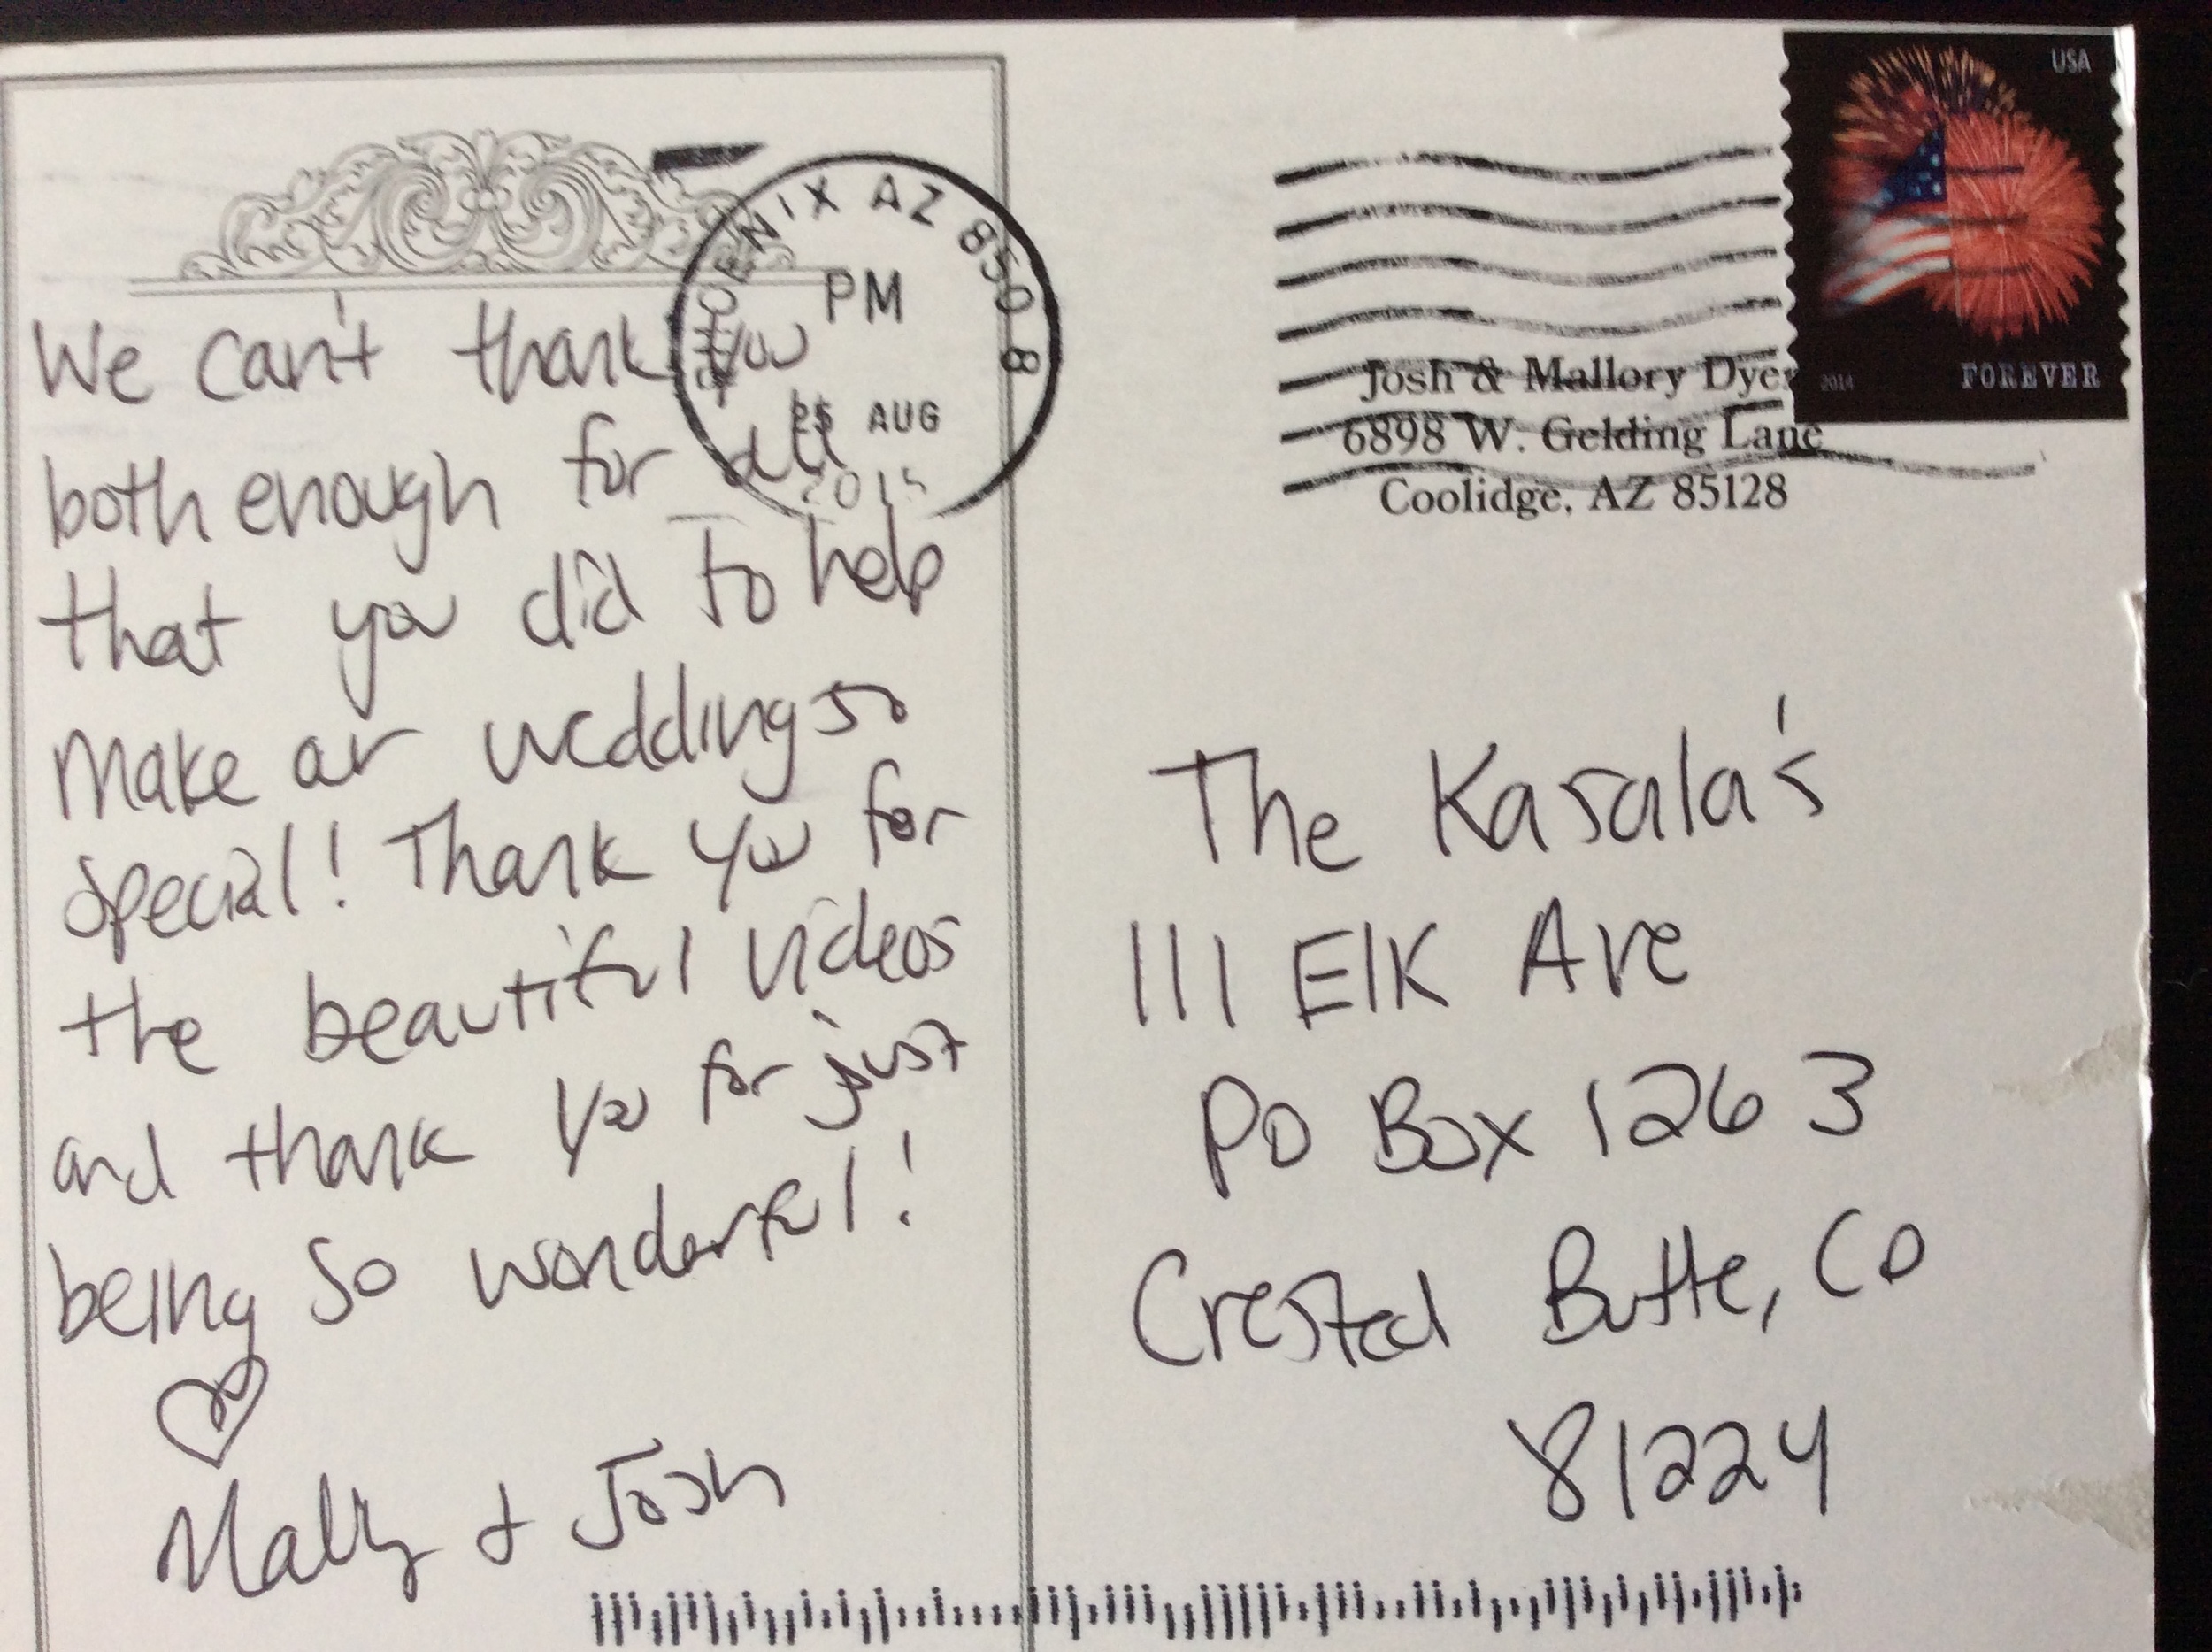 We can't thank you
both enough for all
that you did to help
make our wedding so
special! Thank you for
the beautiful videos
and thank you for just
being so wonderful!
Mally + Josh
PHOENIX AZ 850 8
PM
25 AUG
2015
USA
2014 FOREVER
Josh & Mallory Dyer
6898 W. Gelding Lane
Coolidge, AZ 85128
The Kasala's
111 Elk Ave
PO Box 1263
Crested Butte, CO
81224